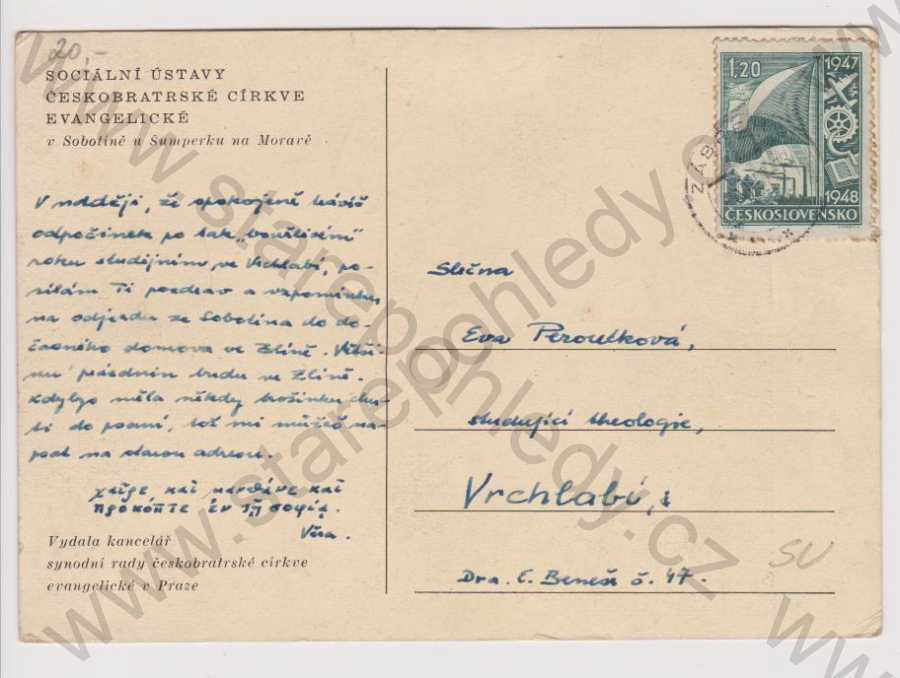 20,-
SOCIÁLNÍ ÚSTAVY
ČESKOBRATRSKÉ CÍRKVE
EVANGELICKÉ
v Sobotíně u Šumperku na Moravě
V naději, že spokojeně trávíš
odpočinek po tak „bouřlivém"
roku studijním ve Vrchlabí, po-
sílám Ti pozdrav a vzpomínku
na odjezdu ze Sobotína do do-
časného domova ve Zlíně. Větši-
nu prázdnin budu ve Zlíně.
Kdybys měla někdy trošinku chu-
ti do psaní, tož mi můžeš na-
psat na starou adresu.
χαῖρε, καὶ καὶ
προκόπτε ἐν τῇ σοφίᾳ.
Věra.
Vydala kancelář
synodní rady českobratrské církve
evangelické v Praze
1,20
1947
1948
ČESKOSLOVENSKO
ZÁB
Slečna
Eva Peroutková,
studující theologie,
Vrchlabí,
Dra. E. Beneše č. 47.
SU
www.starepohledy.cz
www.starepohledy.cz